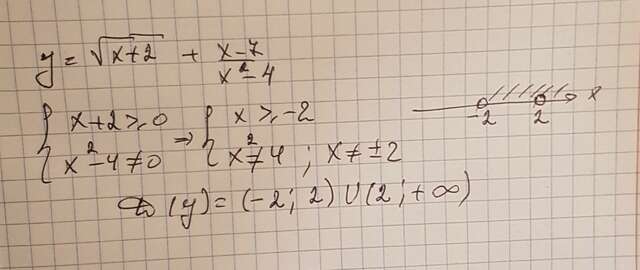 y = √(x+2) + (x-7)/(x²-4)
{ x+2 ⩾ 0 ⇒ { x ⩾ -2
{ x²-4 ≠ 0 { x² ≠ 4 ; x ≠ ±2
-2 2 x
D(y) = (-2; 2) U (2; +∞)